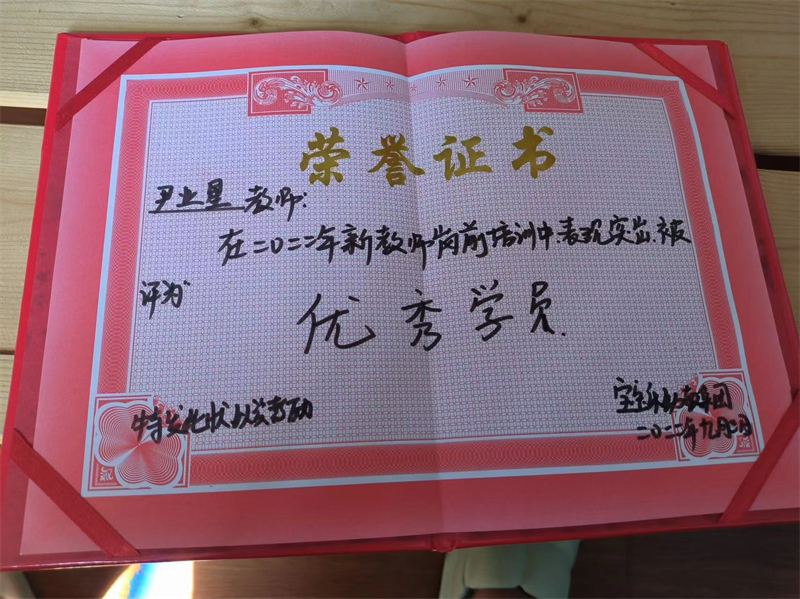 荣誉证书
尹业星 教师:
在二〇二二年新教师岗前培训中,表现突出,被
评为
优秀学员.
特发此状以资鼓励
教育集团
二〇二二年九月二日